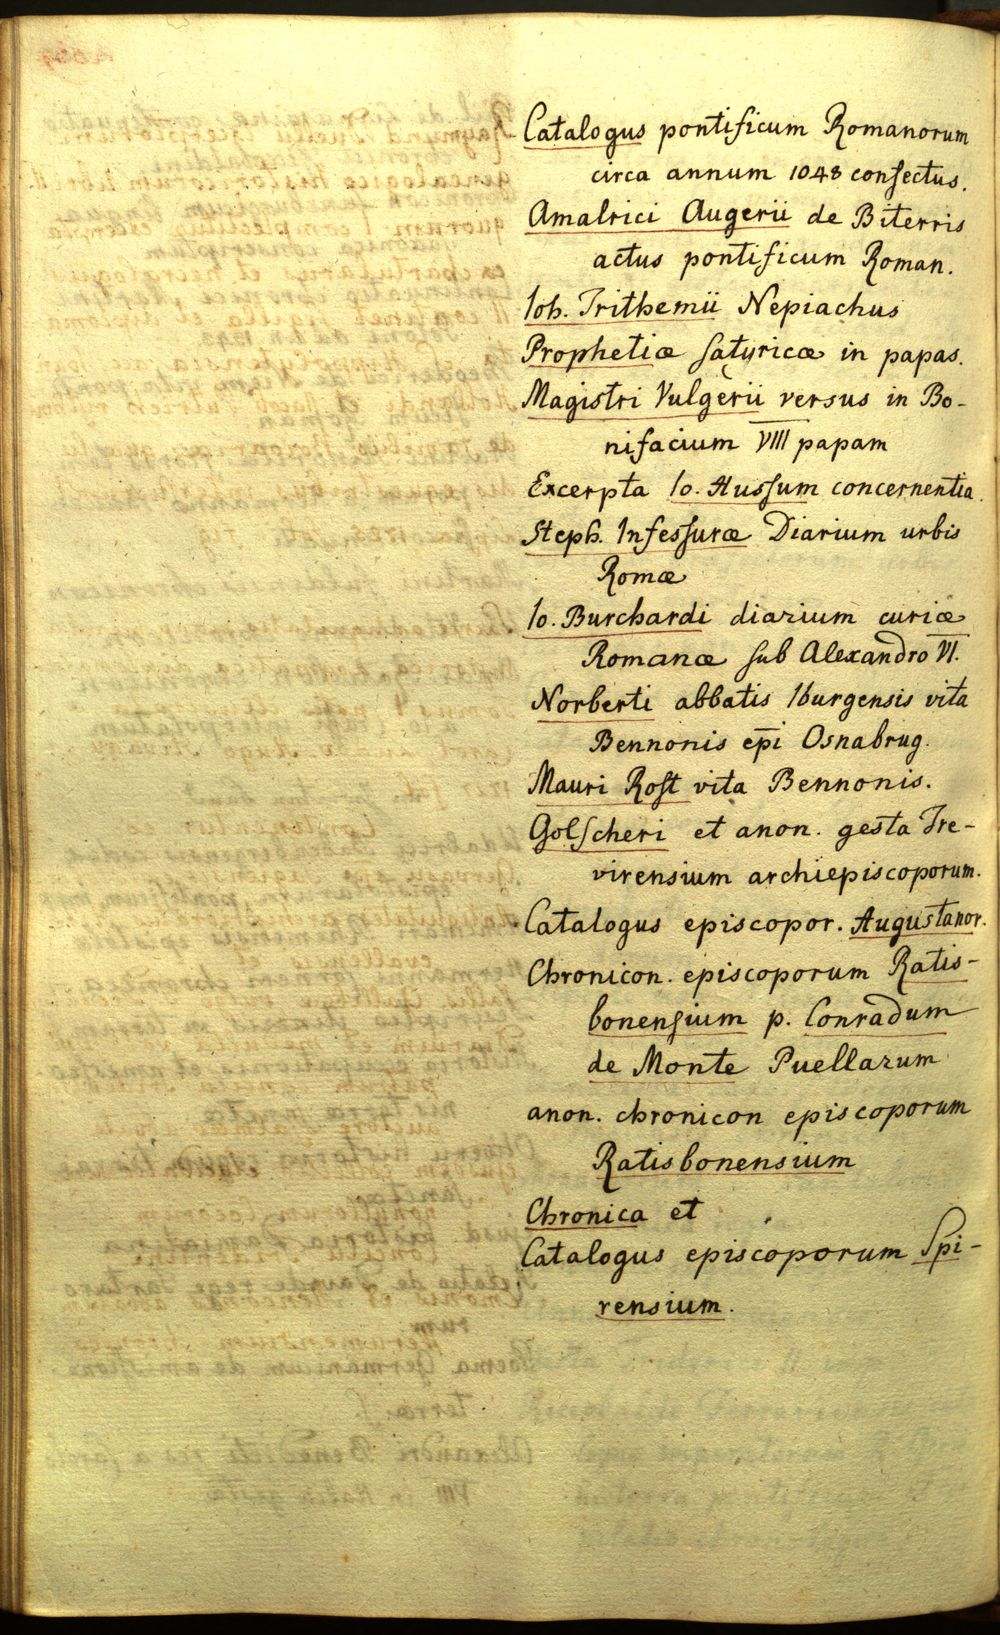 Catalogus pontificum Romanorum
circa annum 1048 confectus.
Amalrici Augerii de Biterris
actus pontificum Roman.
Ioh. Trithemii Nepiachus
Prophetiæ satyricæ in papas.
Magistri Vulgerii versus in Bo-
nifacium VIII papam
Excerpta Io. Hussum concernentia.
Steph. Infessuræ Diarium urbis
Romæ
Io. Burchardi diarium curiæ
Romanæ sub Alexandro VI.
Norberti abbatis Iburgensis vita
Bennonis ep̄i Osnabrug.
Mauri Rost vita Bennonis.
Golscheri et anon. gesta Tre-
virensium archiepiscoporum.
Catalogus episcopor. Augustanor.
Chronicon. episcoporum Ratis-
bonensium p. Conradum
de Monte Puellarum
anon. chronicon episcoporum
Ratisbonensium
Chronica et
Catalogus episcoporum Spi-
rensium.